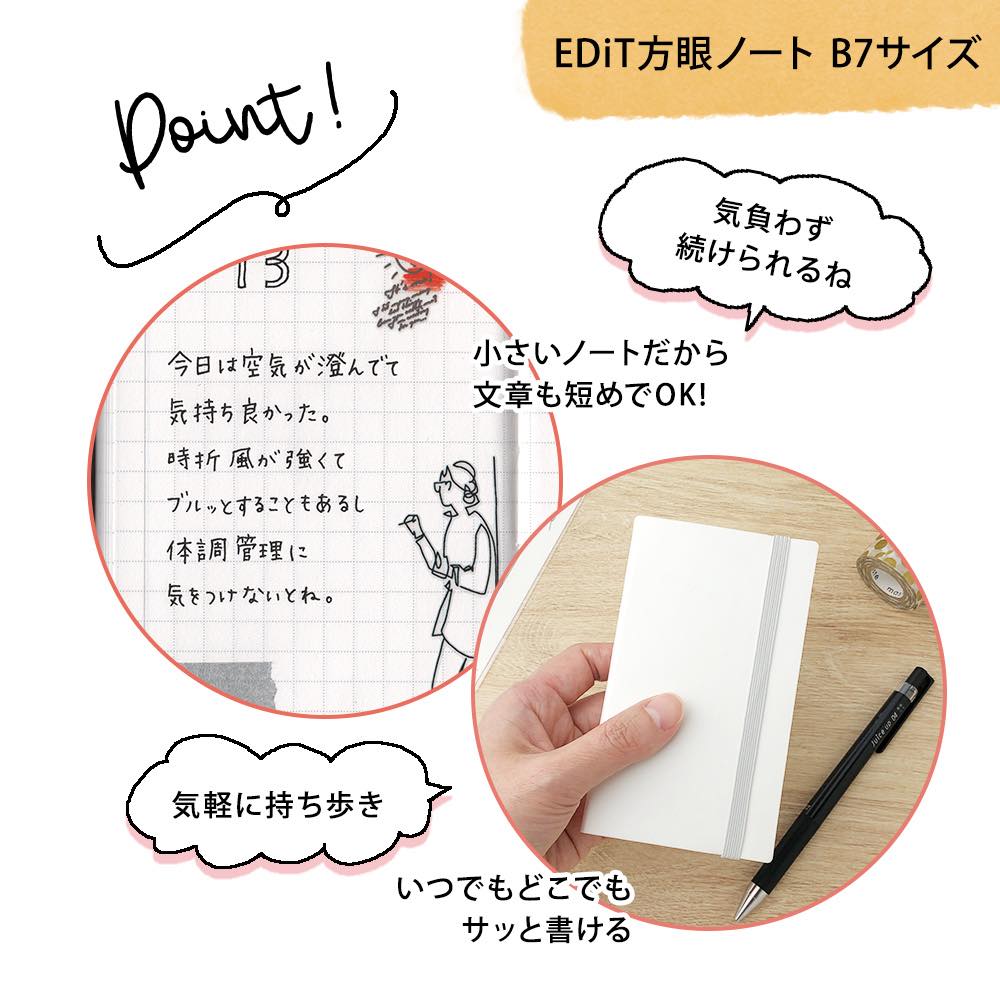 EDiT方眼ノート B7サイズ
Point!
気負わず
続けられるね
小さいノートだから
文章も短めでOK!
13
今日は空気が澄んでて
気持ち良かった。
時折風が強くて
ブルッとすることもあるし
体調管理に
気をつけないとね。
気軽に持ち歩き
いつでもどこでも
サッと書ける
Juice up 04